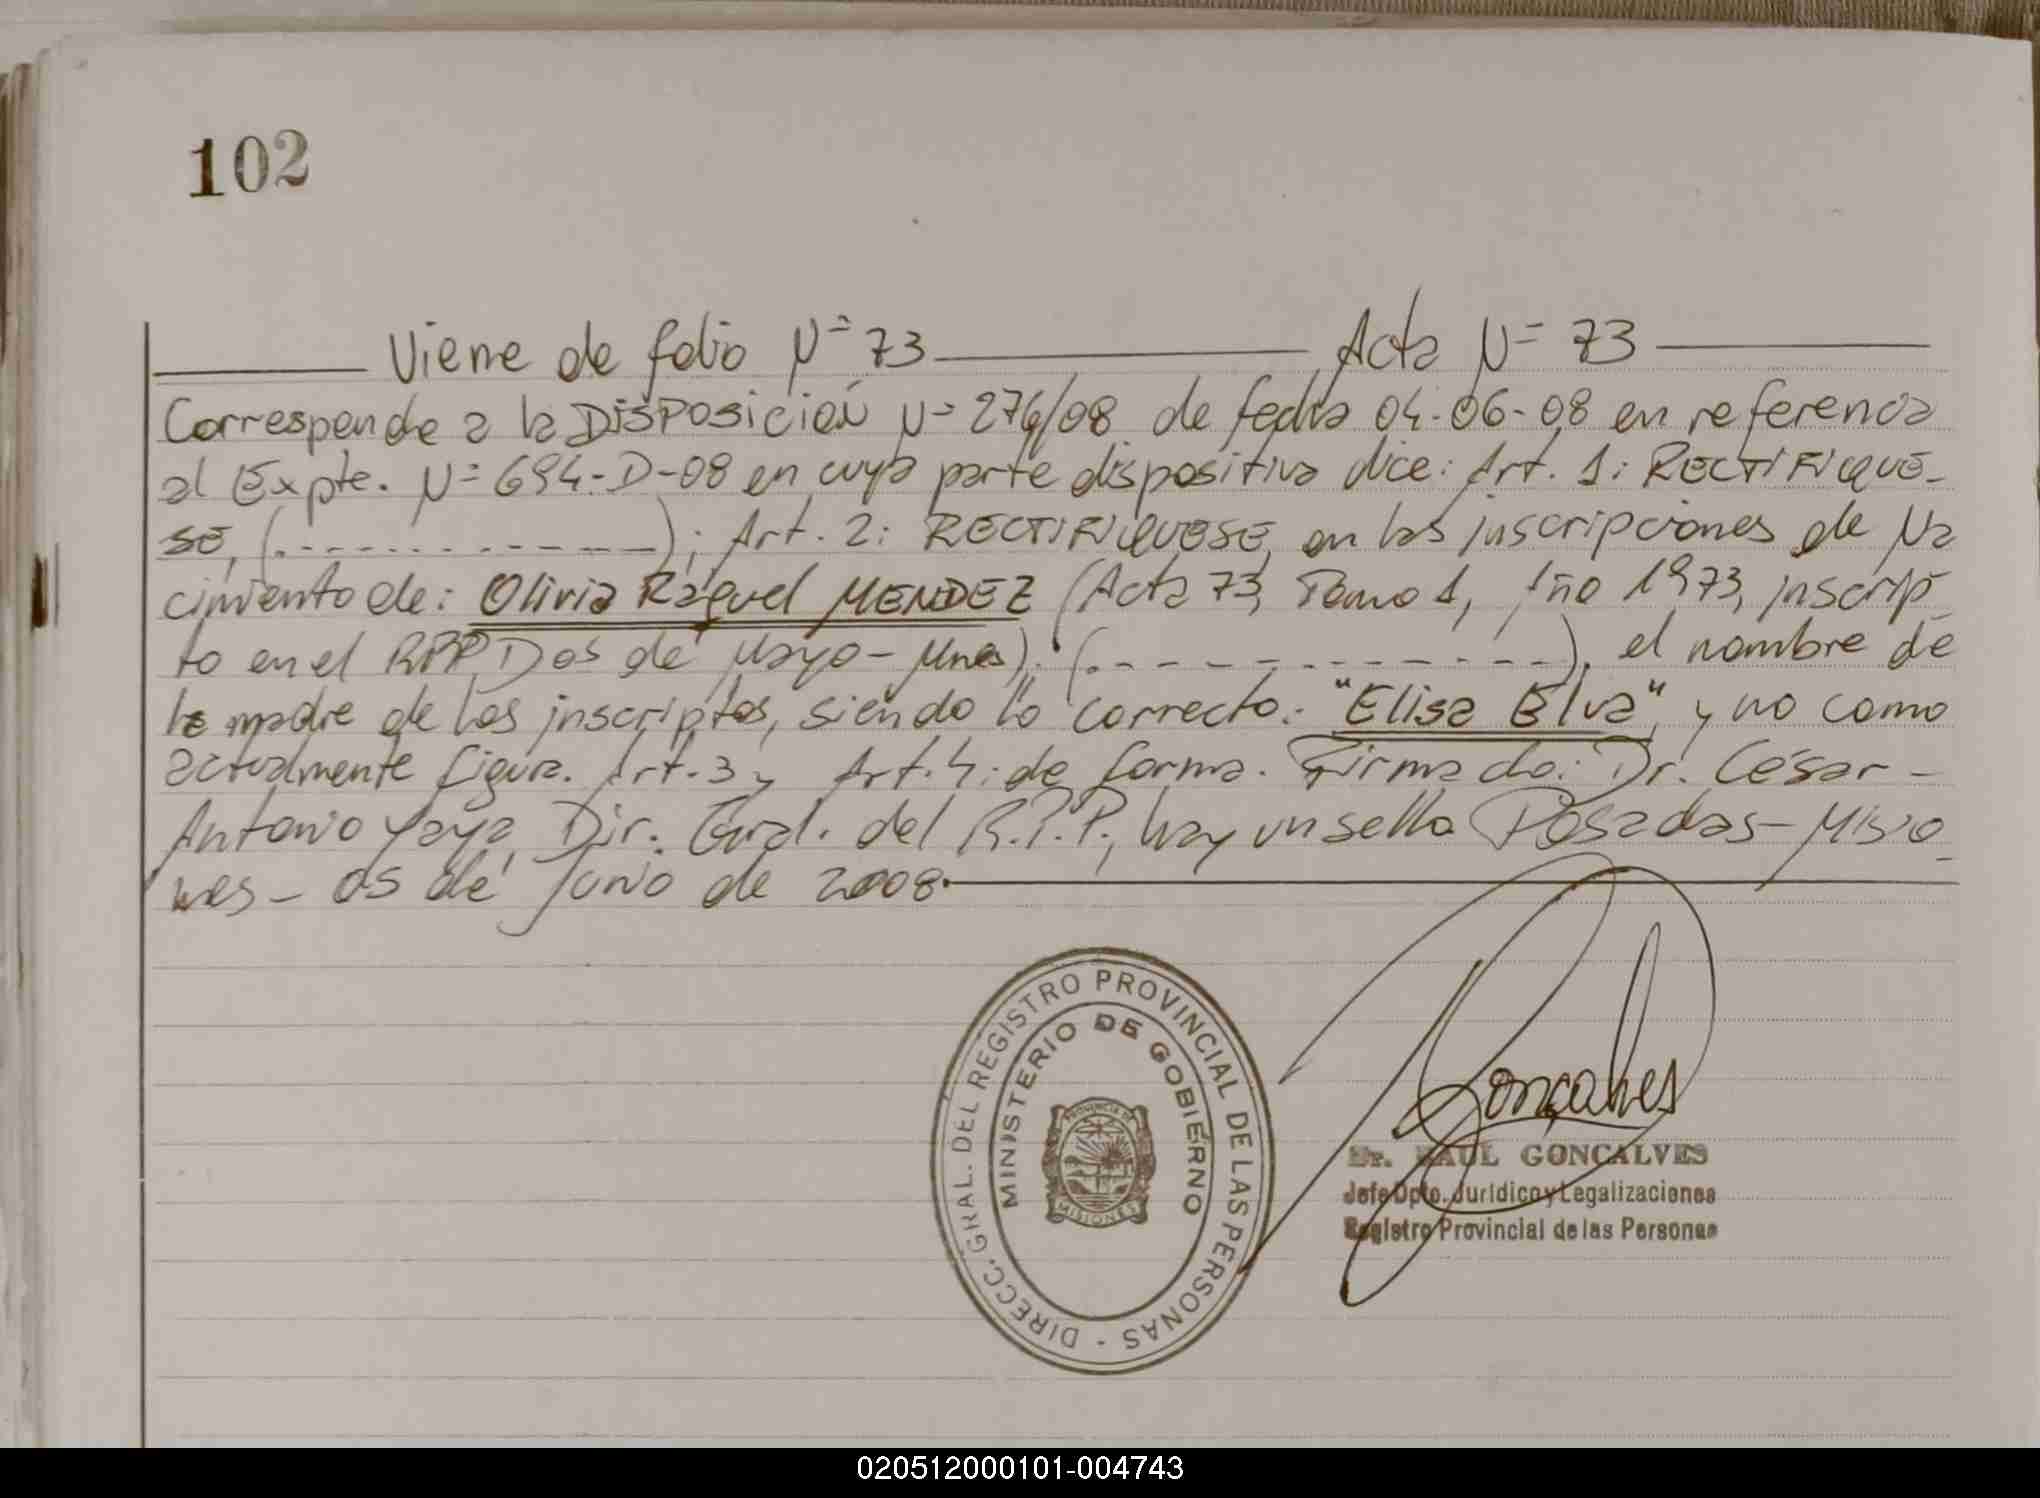 102
Viene de folio N= 73 Acta N= 73
Corresponde a la DISPOSICIÓN N= 276/08 de fecha 04-06-08 en referencia
al Expte. N= 694-D-08 en cuya parte dispositiva dice: Art. 1: RECTIFIQUE-
SE, (.-----------); Art. 2: RECTIFIQUESE, en las inscripciones de Na
cimiento de: Olivia Raquel MENDEZ (Acta 73, Tomo 1, Año 1973, inscrip
to en el RPP Dos de Mayo - Mnes). (.-----------), el nombre de
la madre de los inscriptos, siendo lo correcto: "Elisa Elva", y no como
actualmente figura. Art. 3 y Art. 4: de forma. Firmado: Dr. César -
Antonio Yaya, Dir. Gral. del R.P.P., hay un sello Posadas - Misio
nes - 05 de Junio de 2008.
DIRECC. GRAL. DEL REGISTRO PROVINCIAL DE LAS PERSONAS -
MINISTERIO DE GOBIERNO
PROVINCIA DE
MISIONES
Goncalves
Dr. RAUL GONCALVES
Jefe Dpto. Jurídico y Legalizaciones
Registro Provincial de las Personas
020512000101-004743